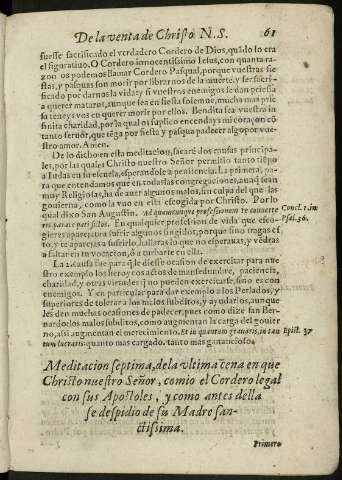 De la venta de Christo N.S. 61
fuesse sacrificado el verdadero Cordero de Dios, quãdo lo era
el figuratiuo. O Cordero innocentissimo Iesus, con quanta ra-
zon os podemos llamar Cordero Pasqual, porque vuestras fie
stas, y pasquas son morir por librarnos de la muerte, y ser sacri-
ficado por darnos la vida; y si vuestros enemigos se dan priessa
a querer mataros, aunque sea en fiesta solemne, mucha mas prie
sa teneys vos en querer morir por ellos. Bendita sea vuestra in
finita charidad, por la qual os suplico encendays mi coraçon cõ
tanto feruor, que tẽga por fiesta y pasqua padecer algo por vue-
stro amor. Amen.
De lo dicho en esta meditacion, sacaré dos causas principa-
les, por las quales Christo nuestro Señor permitio tanto tiẽpo
a Iudas en su escuela, esperandole a penitencia. La primera, pa-
ra que entendamos que en todas las congregaciones, aunq̃ sean
muy Religiosas, ha de auer algunos malos, sin culpa del que las
gouierna, como la vuo en esta escogida por Christo. Por lo
qual dixo San Augustin. Ad quamcunque professionem te conuerte
ris parate pati fictos. En qualquier profession de vida que esco-
Concl. 1. in
Psal. 36.
gieres aparejate a sufrir algunos fingidos, porque sino tragas es-
to, y te aparejas a sufrirlo, hallaras lo que no esperauas, y vẽdras
a faltar en tu vocacion, ò a turbarte en ella.
La 2. causa fue para q̃ le diesse ocasion de exercitar para nue
stro exemplo los heroycos actos de mansedumbre, paciencia,
charidad, y otras virtudes q̃ no pueden exercitarse, sino es con
enemigos. Y en particular para dar exemplo a los Perlados, y
superiores de tolerar a los malos subditos, y ayudarlos, aunque
les den muchas ocasiones de padecer, pues como dize san Ber-
nardo los malos subditos, como augmentan la carga del gouier
no, assi augmentan el merecimiento. Et in quantum grauaris, in tan
Epist. 37
tum lucraris quanto mas cargado, tanto mas ganancioso.
Meditacion septima, de la vltima cena en que
Christo nuestro Señor, comio el Cordero legal
con sus Apostoles, y como antes della
se despidio de su Madre san-
ctissima.
Primero